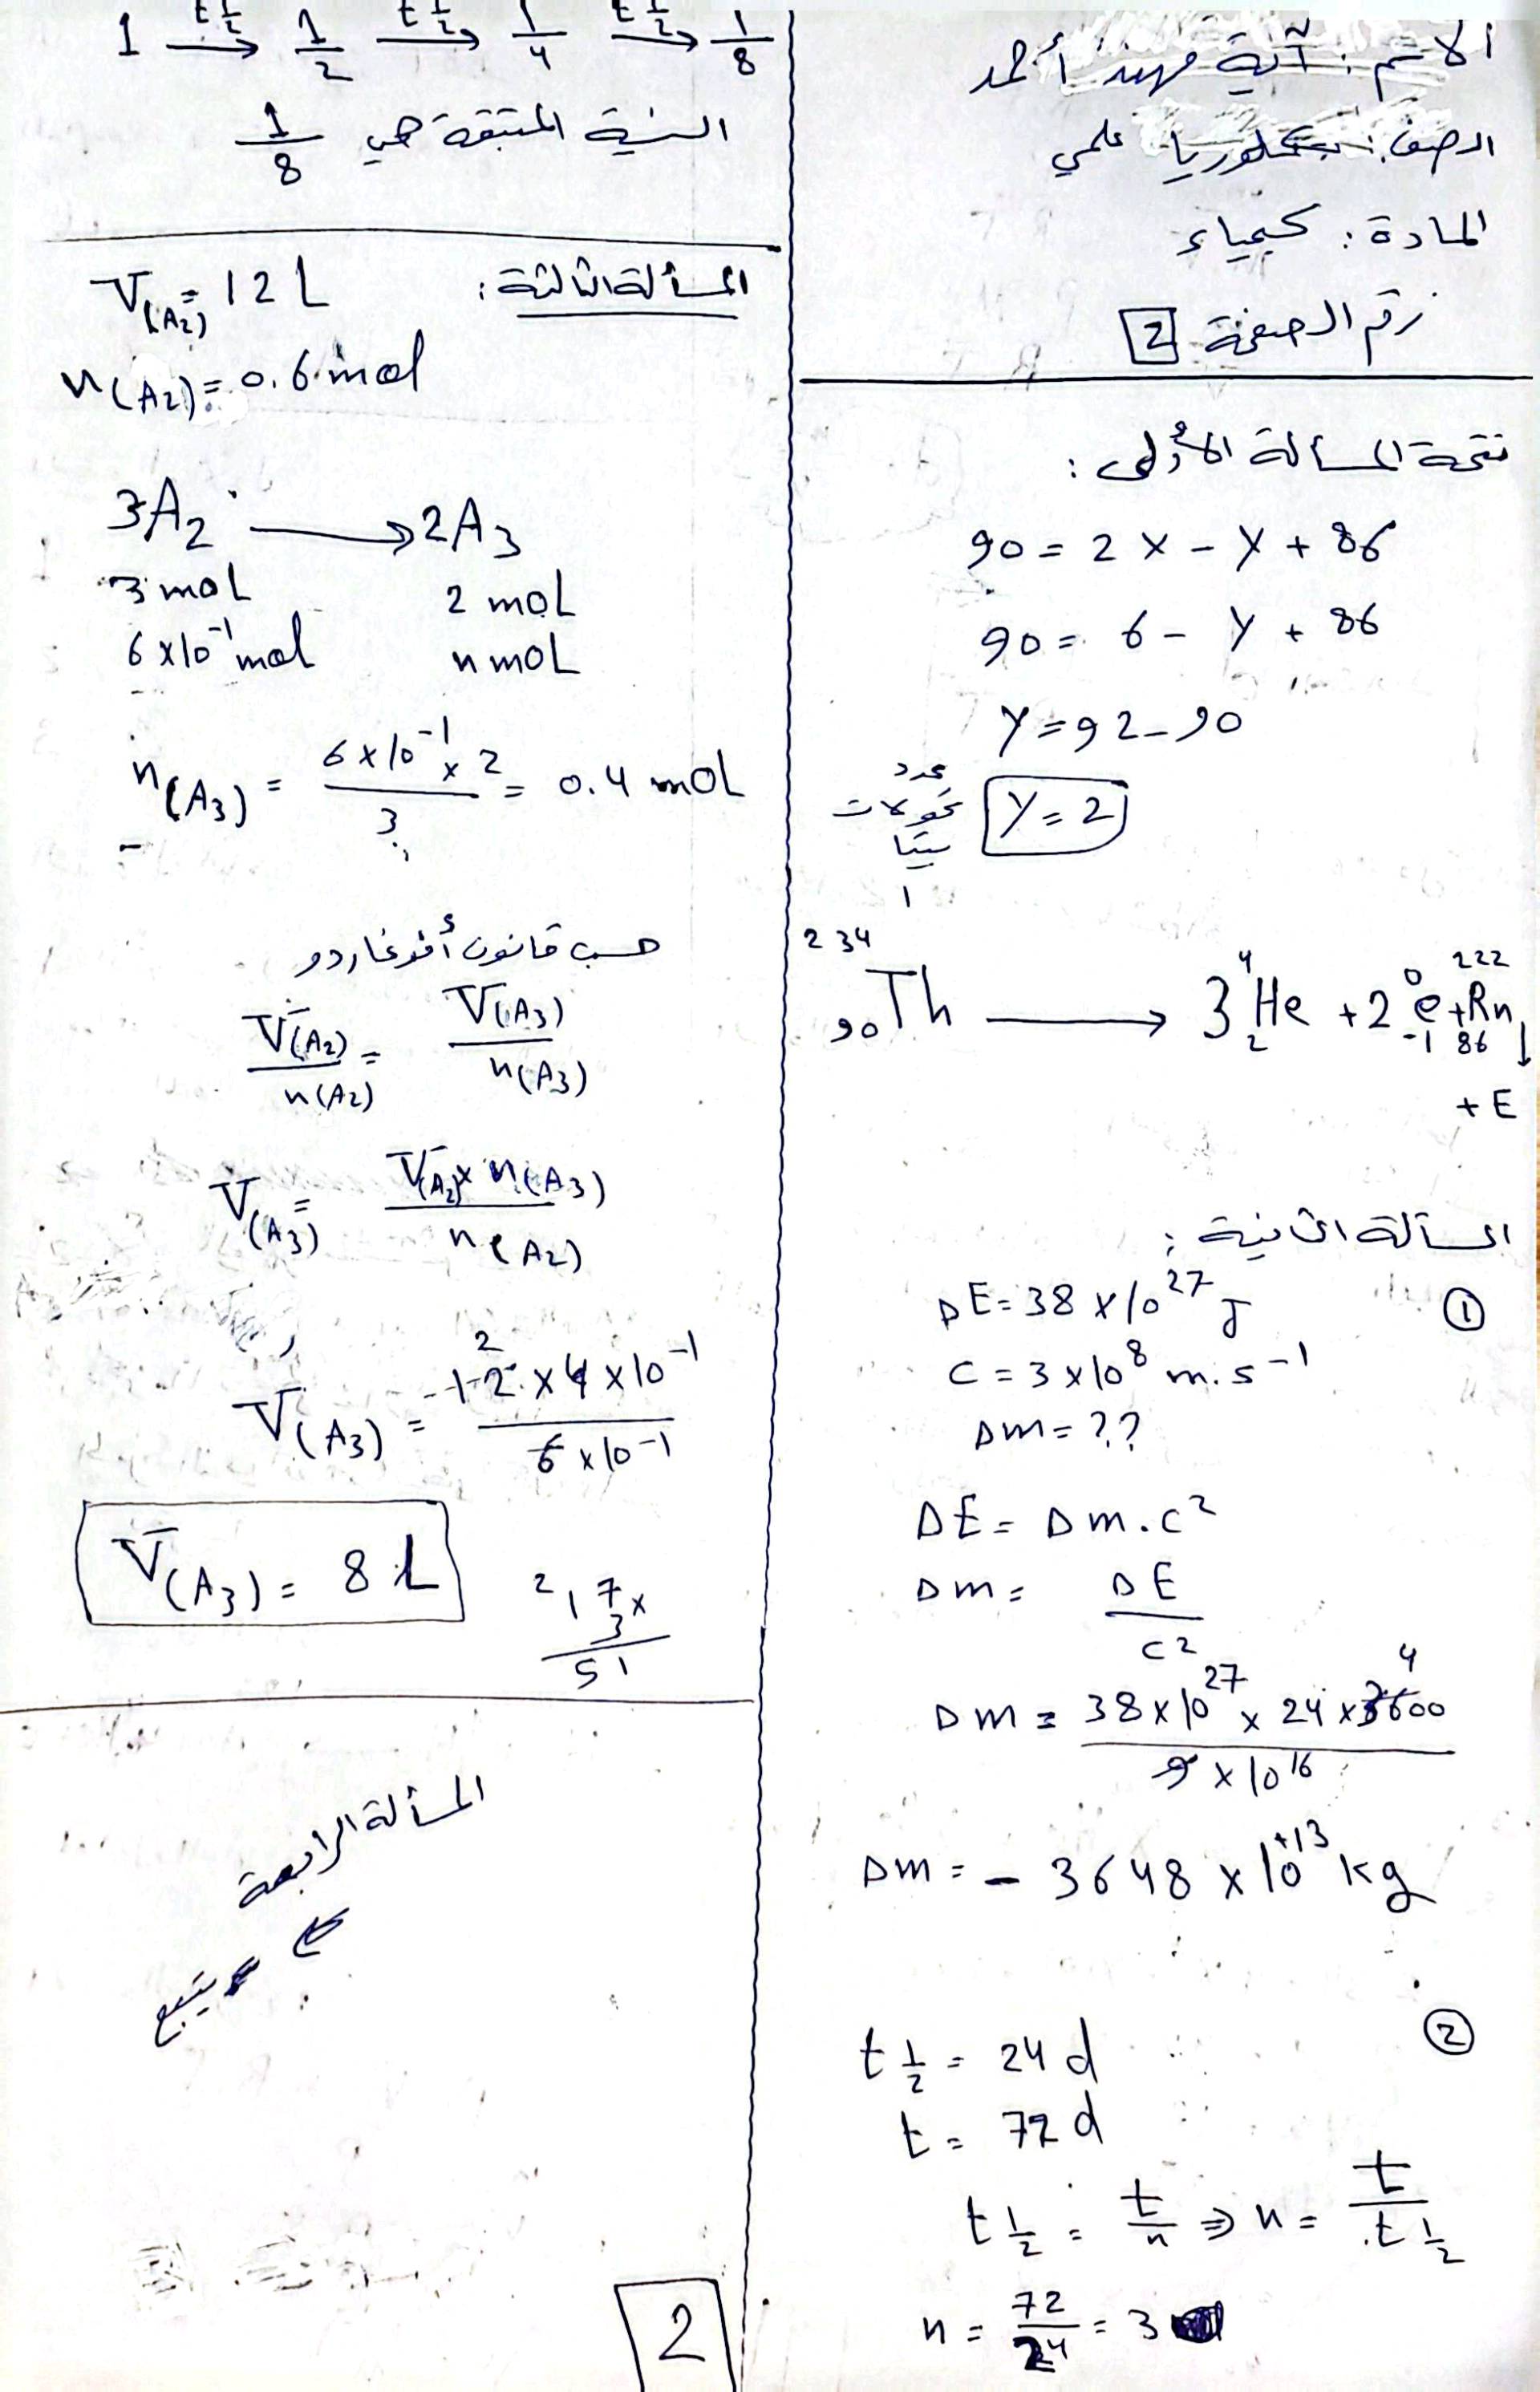 الاسم: آية مهند أحمد
الصف: بكلوريا علمي
المادة: كيمياء
رقم الصفحة 2
تتمة المسألة الأولى:
90 = 2X - Y + 86
90 = 6 - Y + 86
Y = 92 - 90
Y = 2 عدد تحولات بيتا
²³⁴₉₀Th → 3 ⁴₂He + 2 ⁰₋₁e + ²²²₈₆Rn
+ E
المسألة الثانية:
①
ΔE = 38 × 10²⁷ J
C = 3 × 10⁸ m.s⁻¹
Δm = ??
ΔE = Δm . c²
Δm = ΔE / c²
Δm = 38 × 10²⁷ × 24 × 3600 / 9 × 10¹⁶
4
Δm = - 3648 × 10⁺¹³ kg
②
t½ = 24 d
t = 72 d
t½ = t/n ⇒ n = t / t½
n = 72/24 = 3
1 →(t½) 1/2 →(t½) 1/4 →(t½) 1/8
النسبة المتبقية هي 1/8
المسألة الثالثة:
V(A₂) = 12 L
n(A₂) = 0.6 mol
3A₂ → 2A₃
3 mol 2 mol
6 × 10⁻¹ mol n mol
n(A₃) = 6 × 10⁻¹ × 2 / 3 = 0.4 mol
حسب قانون أفوغاردو
V(A₂) / n(A₂) = V(A₃) / n(A₃)
V(A₃) = V(A₂) × n(A₃) / n(A₂)
2
V(A₃) = 12 × 4 × 10⁻¹ / 6 × 10⁻¹
V(A₃) = 8 L
2
17 ×
3
51
المسألة الرابعة
يتبع
2